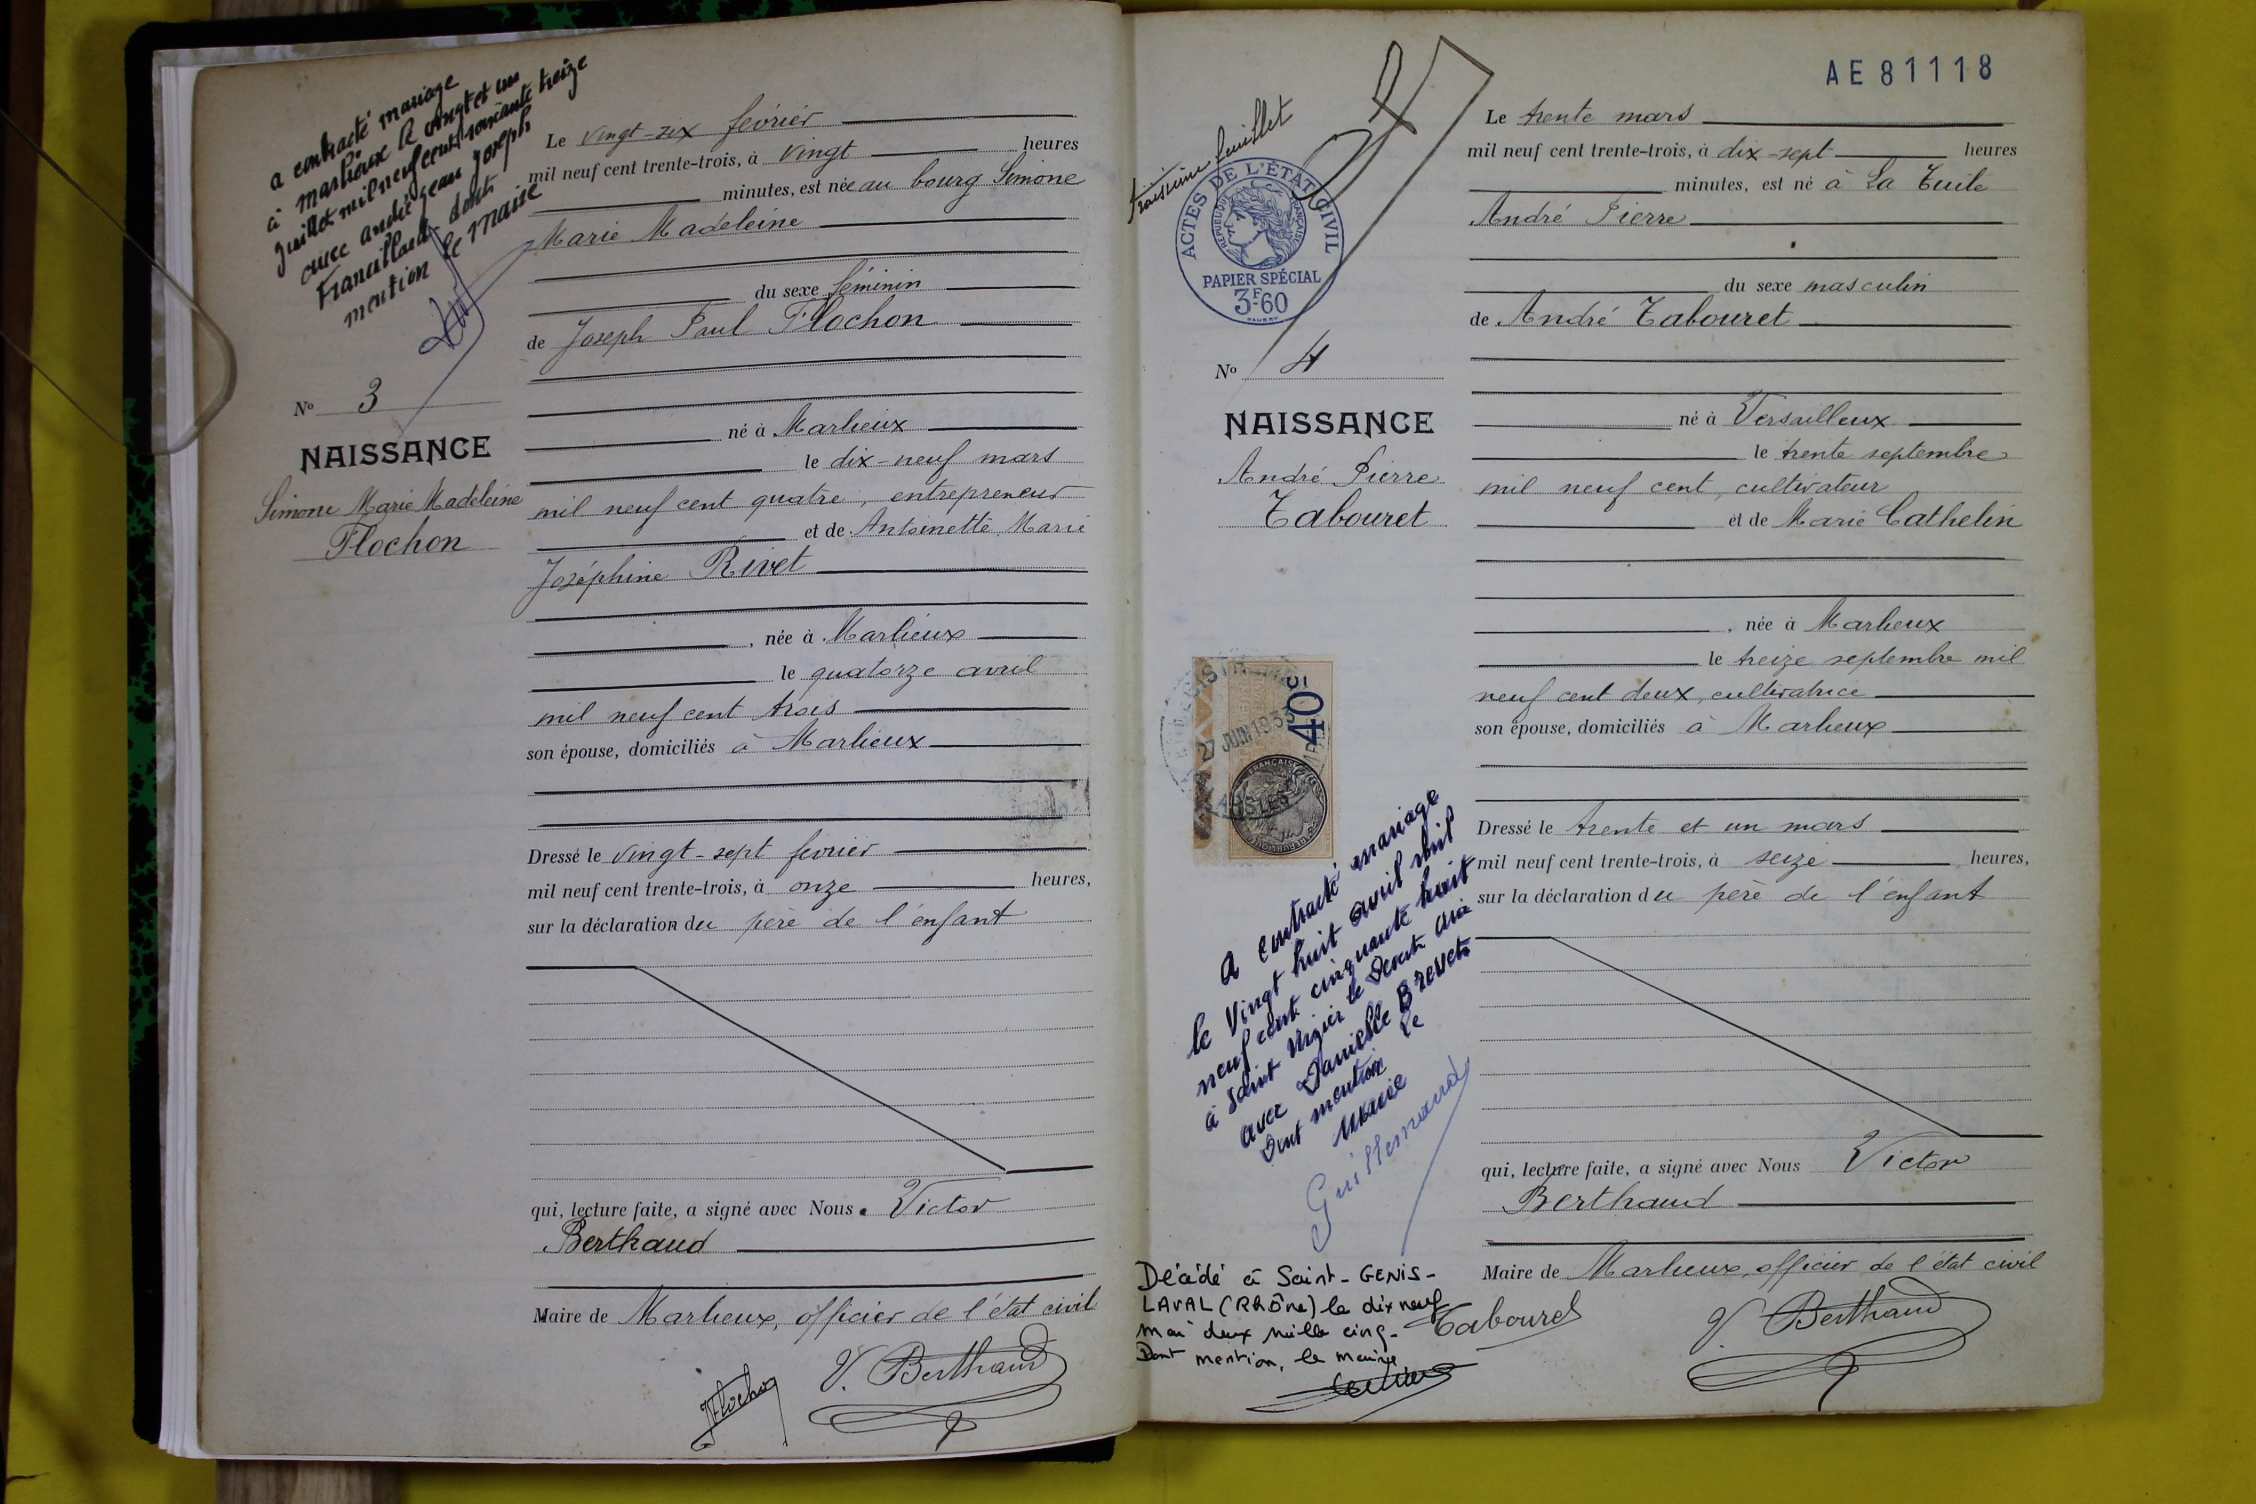 a contracté mariage
à Marlieux le vingt et un
juillet mil neuf cent soixante treize
avec André Jean Joseph
dont
mention le Maire
Nº 3
NAISSANCE
Simone Marie Madeleine
Flochon
Le vingt-six février
mil neuf cent trente-trois, à vingt heures
minutes, est née au bourg Simone
Marie Madeleine
du sexe féminin
de Joseph Paul Flochon
né à Marlieux
le dix-neuf mars
mil neuf cent quatre, entrepreneur
et de Antoinette Marie
Joséphine Rivet
, née à Marlieux
le quatorze avril
mil neuf cent trois
son épouse, domiciliés à Marlieux
Dressé le vingt-sept février
mil neuf cent trente-trois, à onze heures,
sur la déclaration du père de l'enfant
qui, lecture faite, a signé avec Nous Victor
Berthaud
Maire de Marlieux, officier de l'état civil
JFlochon V. Berthaud
AE 81118
troisième feuillet
ACTES DE L'ÉTAT CIVIL
RÉPUBLIQUE FRANÇAISE
PAPIER SPÉCIAL
3F.60
Nº 4
NAISSANCE
André Pierre
Tabouret
27 JUIN 1933
40
FRANÇAISE
a contracté mariage
le vingt huit avril mil
neuf cent cinquante huit
à Saint
avec Danielle
Dont mention Le
Maire
Guillemaud
Décédé à Saint-GENIS-
LAVAL (RHÔNE) le dix neuf
mai deux mille cinq.
Dont mention, le maire
Le trente mars
mil neuf cent trente-trois, à dix-sept heures
minutes, est né à La Tuile
André Pierre
du sexe masculin
de André Tabouret
né à Versailleux
le trente septembre
mil neuf cent, cultivateur
et de Marie Cathelin
, née à Marlieux
le treize septembre mil
neuf cent deux, cultivatrice
son épouse, domiciliés à Marlieux
Dressé le trente et un mars
mil neuf cent trente-trois, à seize heures,
sur la déclaration du père de l'enfant
qui, lecture faite, a signé avec Nous Victor
Berthaud
Maire de Marlieux, officier de l'état civil
Tabouret V. Berthaud